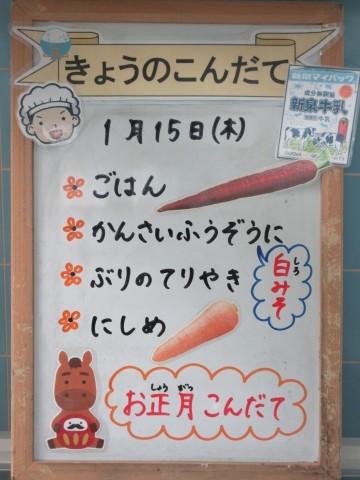 きょうのこんだて
新泉マイパック
成分無調整
新泉牛乳
1月15日(木)
ごはん
かんさいふうぞうに
白みそ
しろ
ぶりのてりやき
にしめ
お正月こんだて
しょう がつ